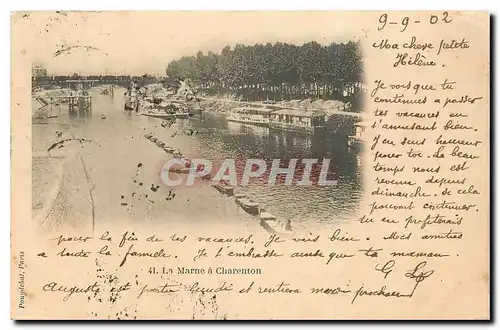 9-9-02
Ma chere petite
Hélène.
Je vois que tu
continues a passer
tes vacances en
t'amusant bien.
J'en suis heureux
pour toi. Le beau
temps nous est
revenu depuis
dimanche. Si cela
pouvait continuer
tu en profiterais
pour la fin de tes vacances. Je vais bien. Mes amities
a toute la famille. Je t'embrasse ainsi que ta maman.
41. La Marne à Charenton
Auguste est parti Jeudi et rentrera mardi prochain
Pouydebat, Paris
DELCAMPHIL